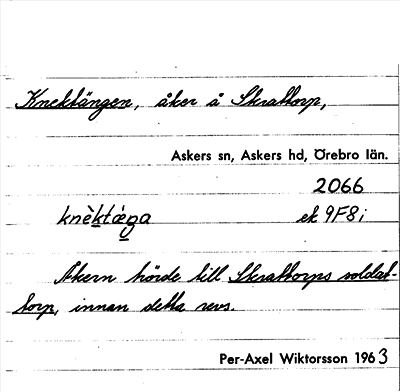 Knektängen, åker å Skrattorp,
Askers sn, Askers hd, Örebro län.
2066
knèktæ̀ŋa ek 9F8i
Åkern hörde till Skrattorps soldat-
torp, innan detta revs.
Per-Axel Wiktorsson 1963